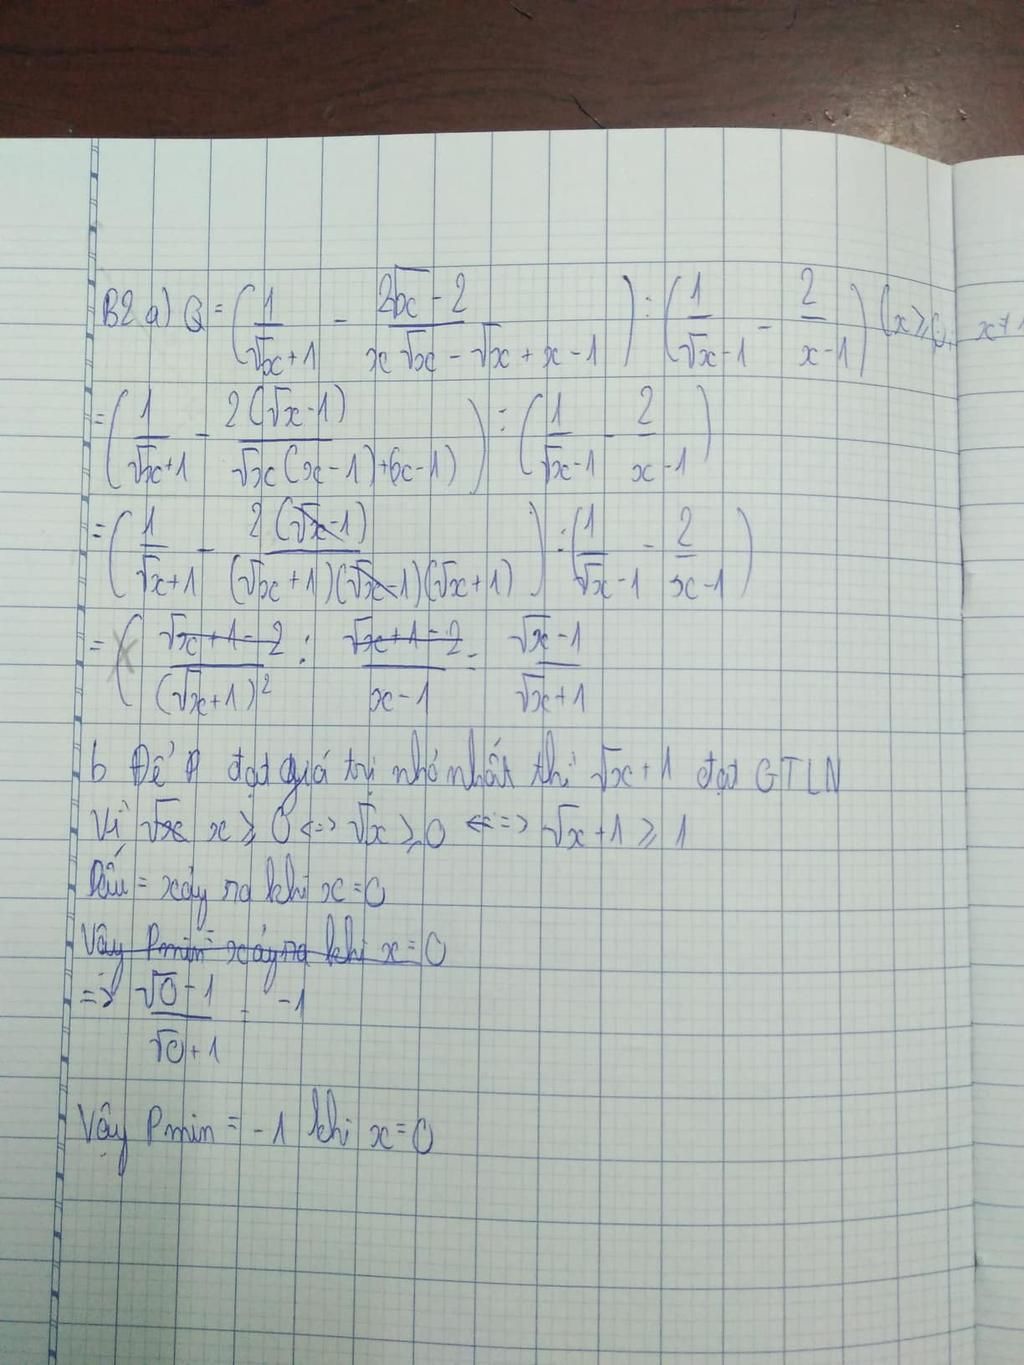 B2 a) Q = (1/(√x+1) - (2√x-2)/(x√x-√x+x-1)) : (1/(√x-1) - 2/(x-1)) (x ≥ 0; x ≠ 1
= (1/(√x+1) - 2(√x-1)/(√x(x-1)+(x-1))) : (1/(√x-1) - 2/(x-1))
= (1/(√x+1) - 2(√x-1)/((√x+1)(√x-1)(√x+1))) : (1/(√x-1) - 2/(x-1))
= ( (√x+1-2)/(√x+1)² : (√x+1-2)/(x-1) = (√x-1)/(√x+1)
b Để P đạt giá trị nhỏ nhất thì √x+1 đạt GTLN
Vì √x x ≥ 0 <=> √x ≥ 0 <=> √x+1 ≥ 1
Dấu = xảy ra khi x=0
Vậy Pmin = xảy ra khi x=0
=> (√0-1)/(√0+1) = -1
Vậy Pmin = -1 khi x=0